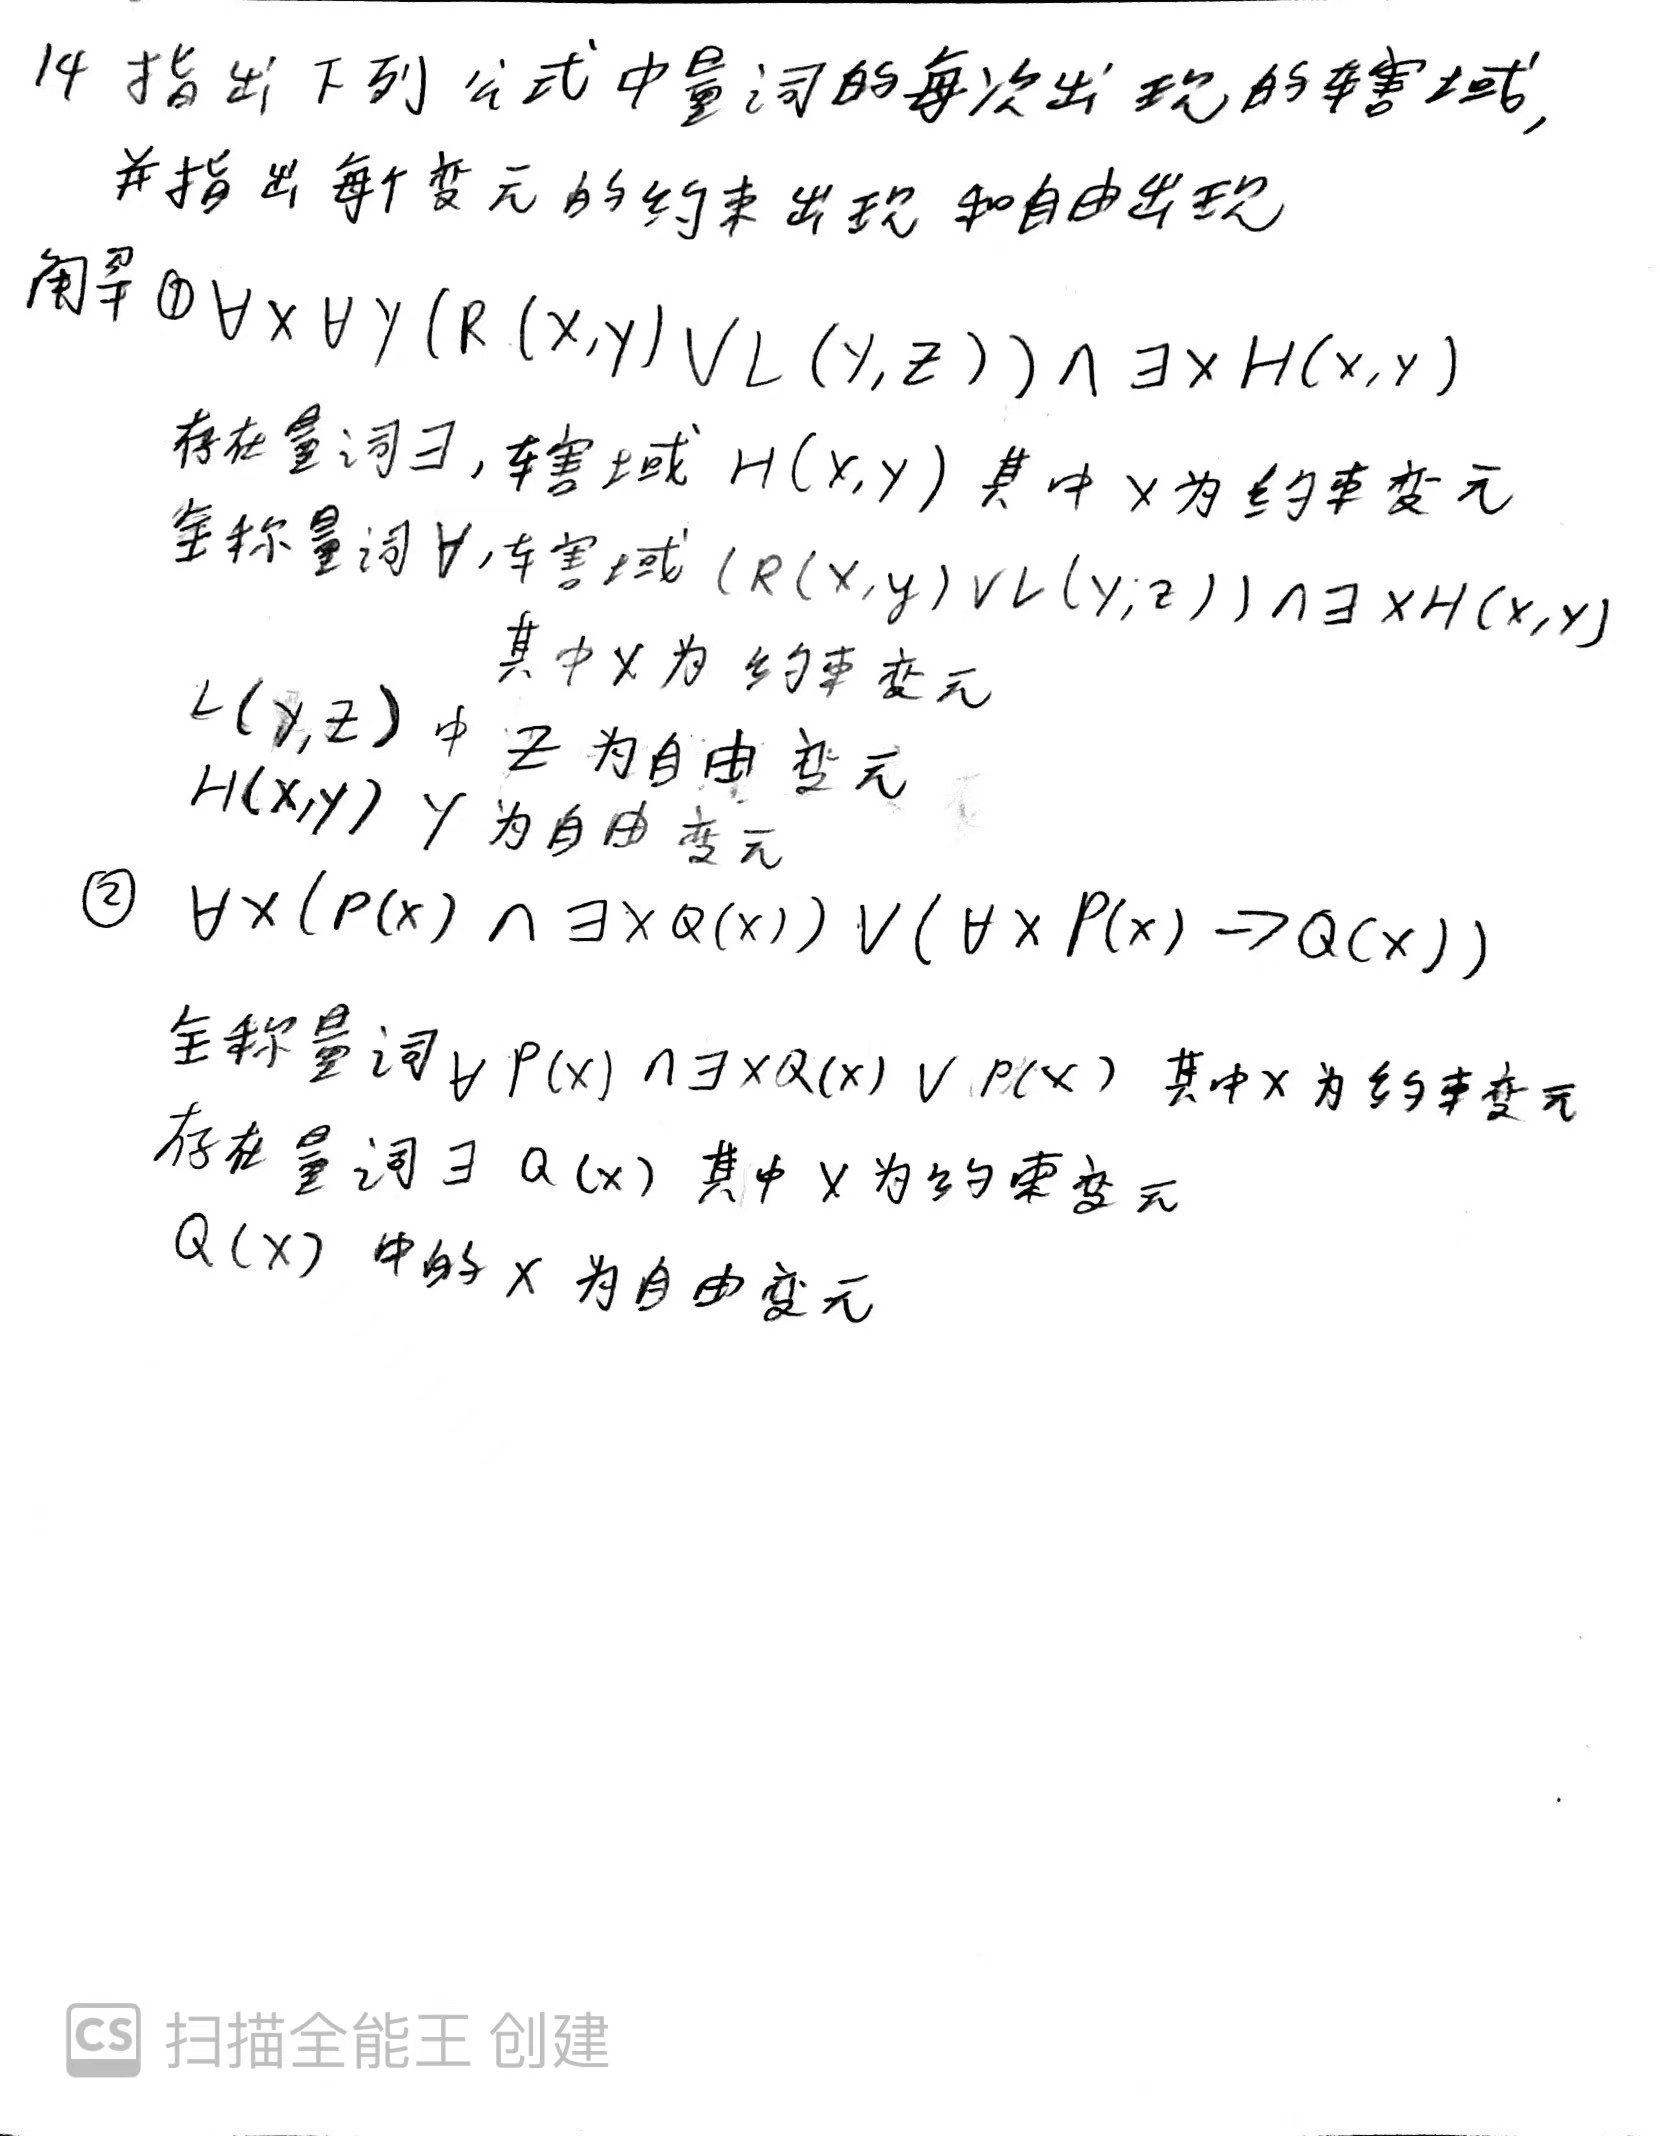 14 指出下列公式中量词的每次出现的辖域,
并指出每个变元的约束出现和自由出现
解 ① ∀x∀y(R(x,y)∨L(y,z))∧∃xH(x,y)
存在量词∃,辖域 H(x,y) 其中x为约束变元
全称量词∀,辖域(R(x,y)∨L(y,z))∧∃xH(x,y)
其中x为约束变元
L(y,z)中 z为自由变元
H(x,y) y为自由变元
② ∀x(P(x)∧∃xQ(x))∨(∀xP(x)→Q(x))
全称量词∀ P(x)∧∃xQ(x)∨P(x) 其中x为约束变元
存在量词∃ Q(x) 其中x为约束变元
Q(x)中的x为自由变元
CS 扫描全能王 创建